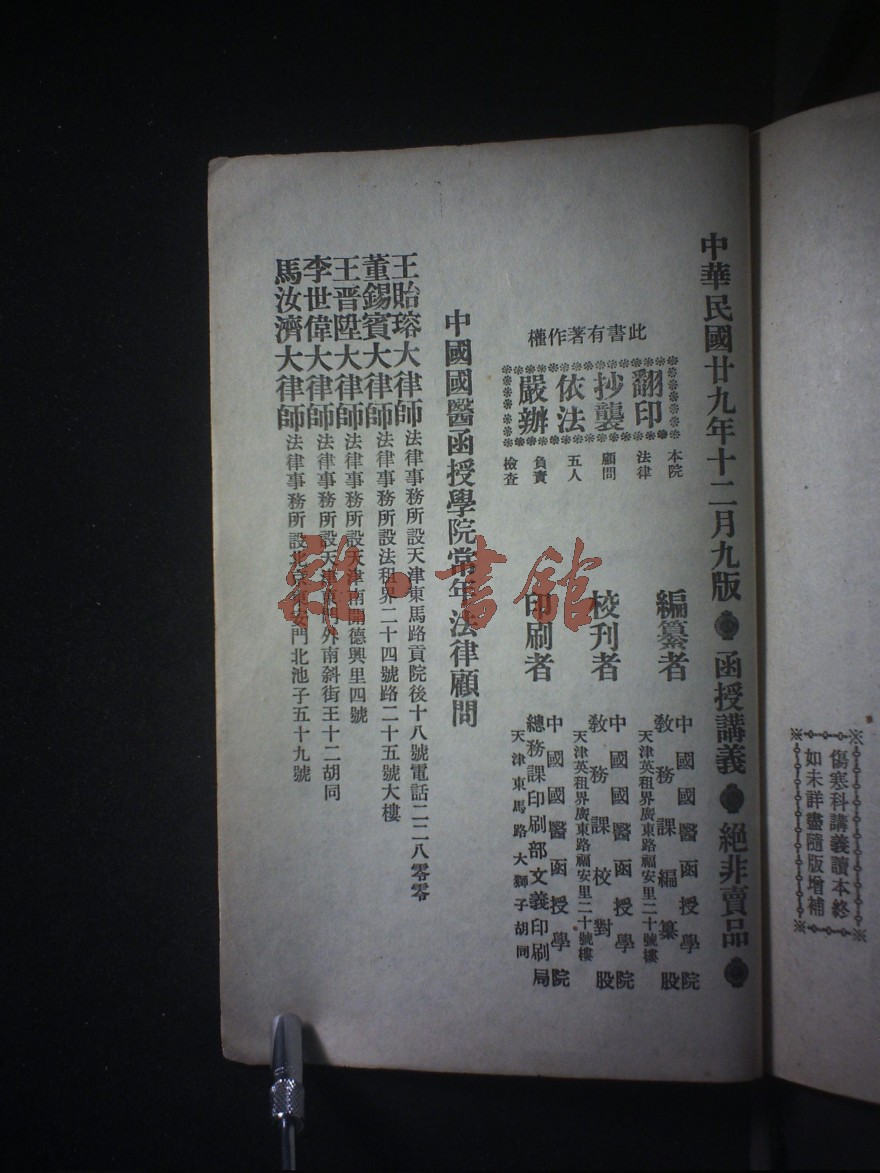 傷寒科講義讀本終
如未詳盡隨版增補
中華民國廿九年十二月九版 函授講義 絕非賣品
此書有著作權
翻印
抄襲
依法
嚴辦
本院
法律
顧問
五人
負責
檢查
編纂者
中國國醫函授學院
教務課編纂股
天津英租界廣東路福安里二十號樓
校刊者
中國國醫函授學院
教務課校對股
天津英租界廣東路福安里二十號樓
印刷者
中國國醫函授學院
總務課印刷部文義印刷局
天津東馬路大獅子胡同
中國國醫函授學院常年法律顧問
王貽瑢大律師 法律事務所設天津東馬路貢院後十八號電話二二八零零
董錫賓大律師 法律事務所設法租界二十四號路二十五號大樓
王晋陞大律師 法律事務所設天津南開德興里四號
李世偉大律師 法律事務所設天津東門外南斜街王十二胡同
馬汝濟大律師 法律事務所設北京東安門北池子五十九號
雜·書館